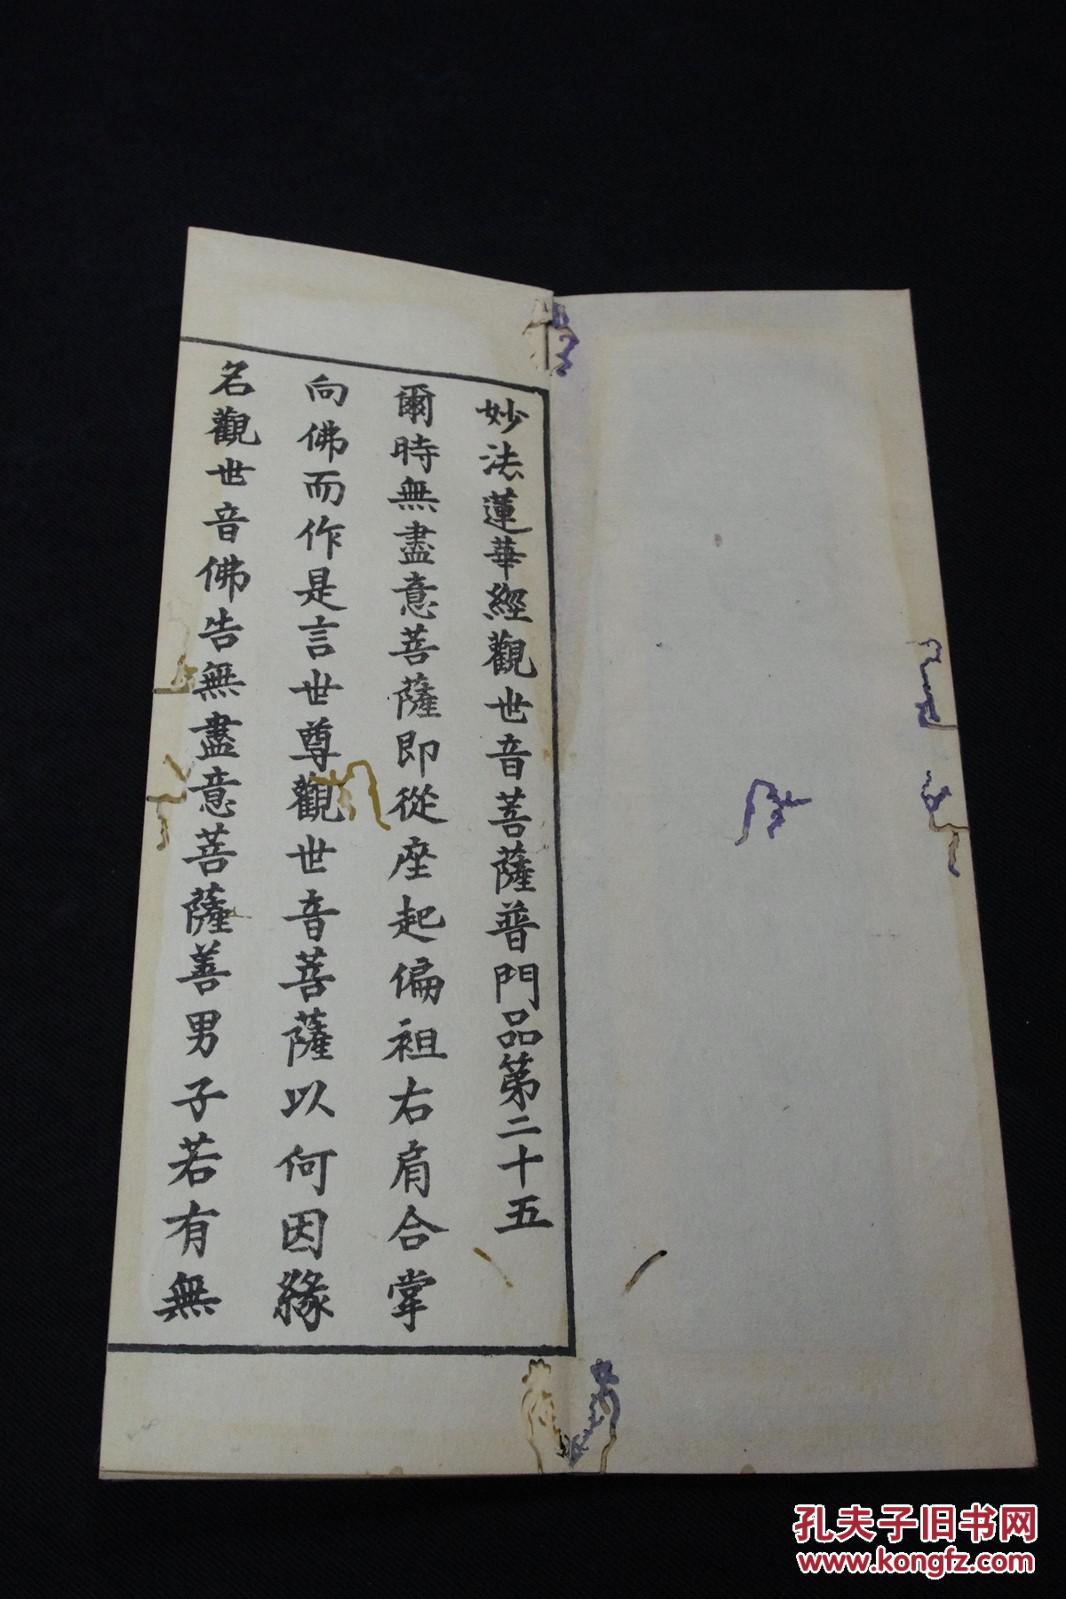 妙法蓮華經觀世音菩薩普門品第二十五
爾時無盡意菩薩即從座起偏袒右肩合掌
向佛而作是言世尊觀世音菩薩以何因緣
名觀世音佛告無盡意菩薩善男子若有無
孔夫子旧书网
www.kongfz.com